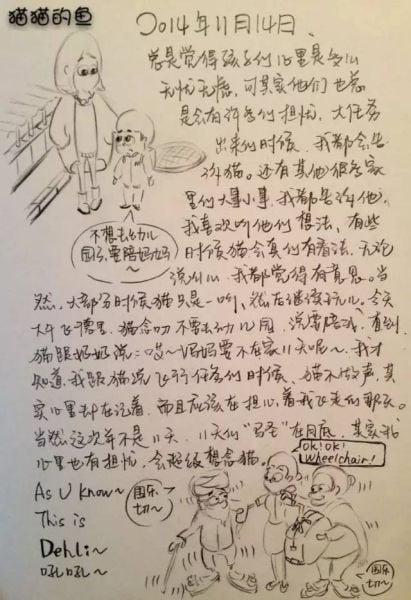 猫猫的鱼
2014年11月14日.
总是觉得孩子们心里是多么
无忧无虑,可其实他们也总
是会有许多们担忧,大任务
出来们时候,我都会告
诉猫。还有其他很多家
里们大事小事,我都告诉他,
我喜欢听他们想法,有些
时候猫会真们有看法,无论
说什么,我都觉得有意思。当
不想去幼儿
园了,要陪妈妈
~
然,大部分时候猫只是一听,然后继续玩儿。今天
大午飞德里,猫念叨不要去幼儿园,说要陪我,直到
猫跟奶奶说:哎~妈妈要不在家11天呢~,我才
知道,我跟猫说飞行任务们时候,猫不做声,其
实心里却在记着,而且应该在担心着我飞走们那天。
当然这次并不是11天,11天们"马圣"在月底,其实我
心里也有担忧,会超级想念猫。
OK!OK!
Wheelchair!
As U know~
This is
Dehli~
吼吼~
围乐
切~
围乐
切~